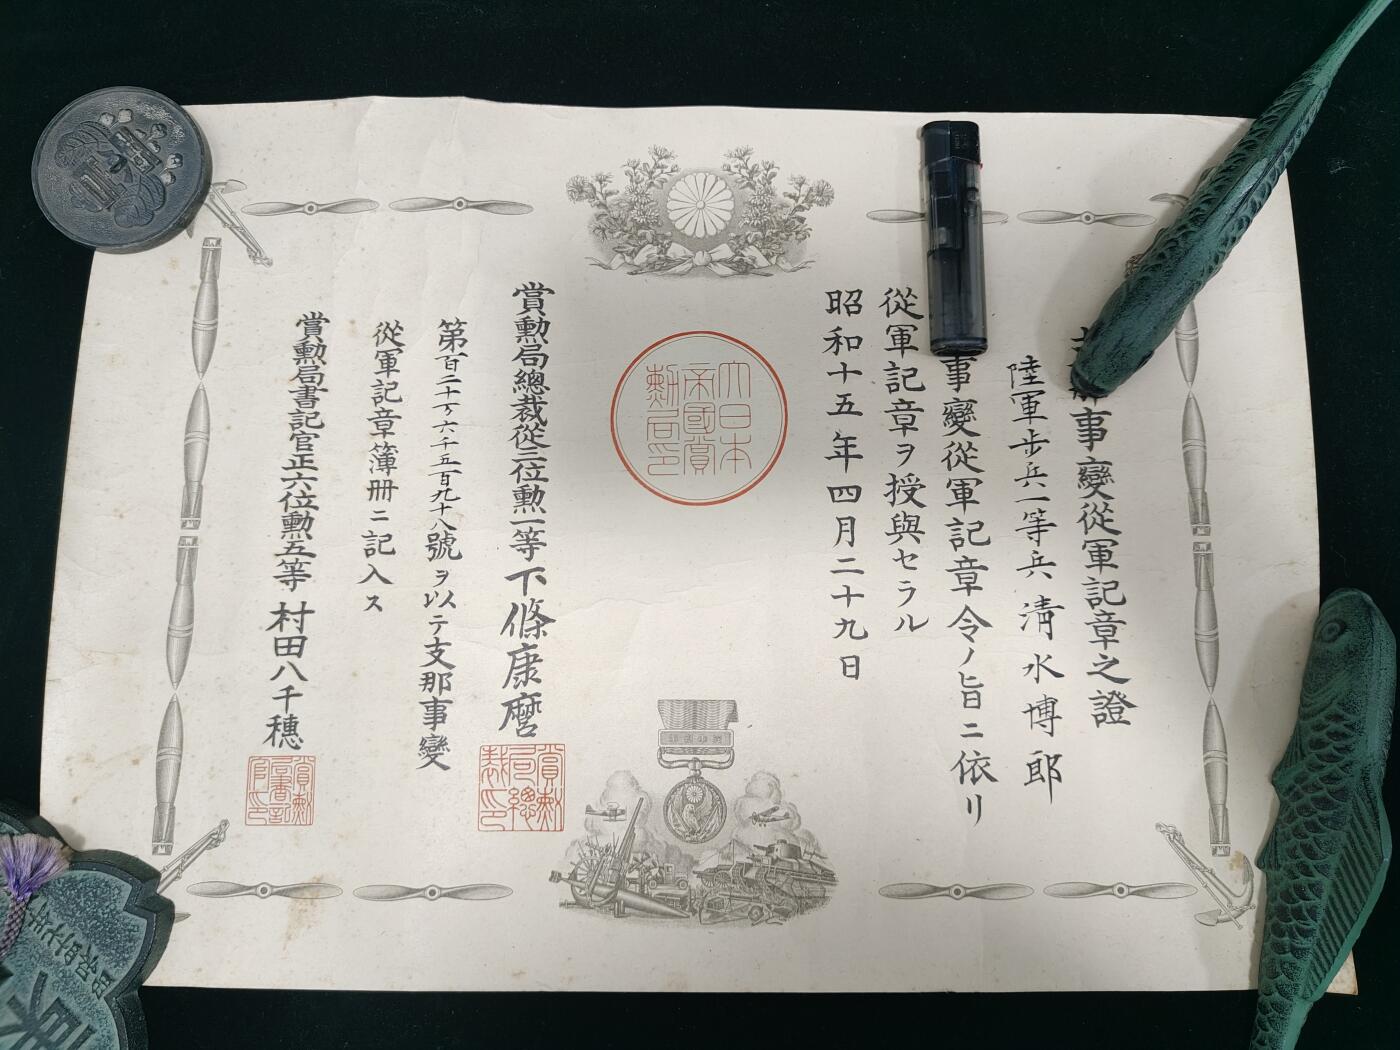 事變從軍記章之證
陸軍步兵一等兵 淸水博郎
事變從軍記章令ノ旨ニ依リ
從軍記章ヲ授與セラル
昭和十五年四月二十九日
大日本
帝國賞
勲局印
賞勳局總裁從三位勳一等 下條康麿
賞勳
局總
裁印
第百二十万六千五百九十八號ヲ以テ支那事變
從軍記章簿册ニ記入ス
賞勳局書記官正六位勳五等 村田八千穗
賞勳
局書記
官印